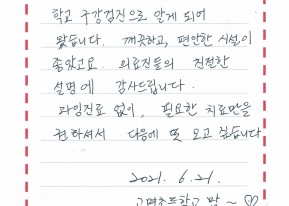 학교 구강검진으로 알게 되어
왔습니다. 깨끗하고, 편안한 시설이
좋았고요. 의료진들의 친절한
설명에 감사드립니다.
과잉진료 없이, 필요한 치료만을
권하셔서 다음에 또 오고 싶습니다
2021. 6. 21.
고명초등학교 맘 ~ ♡